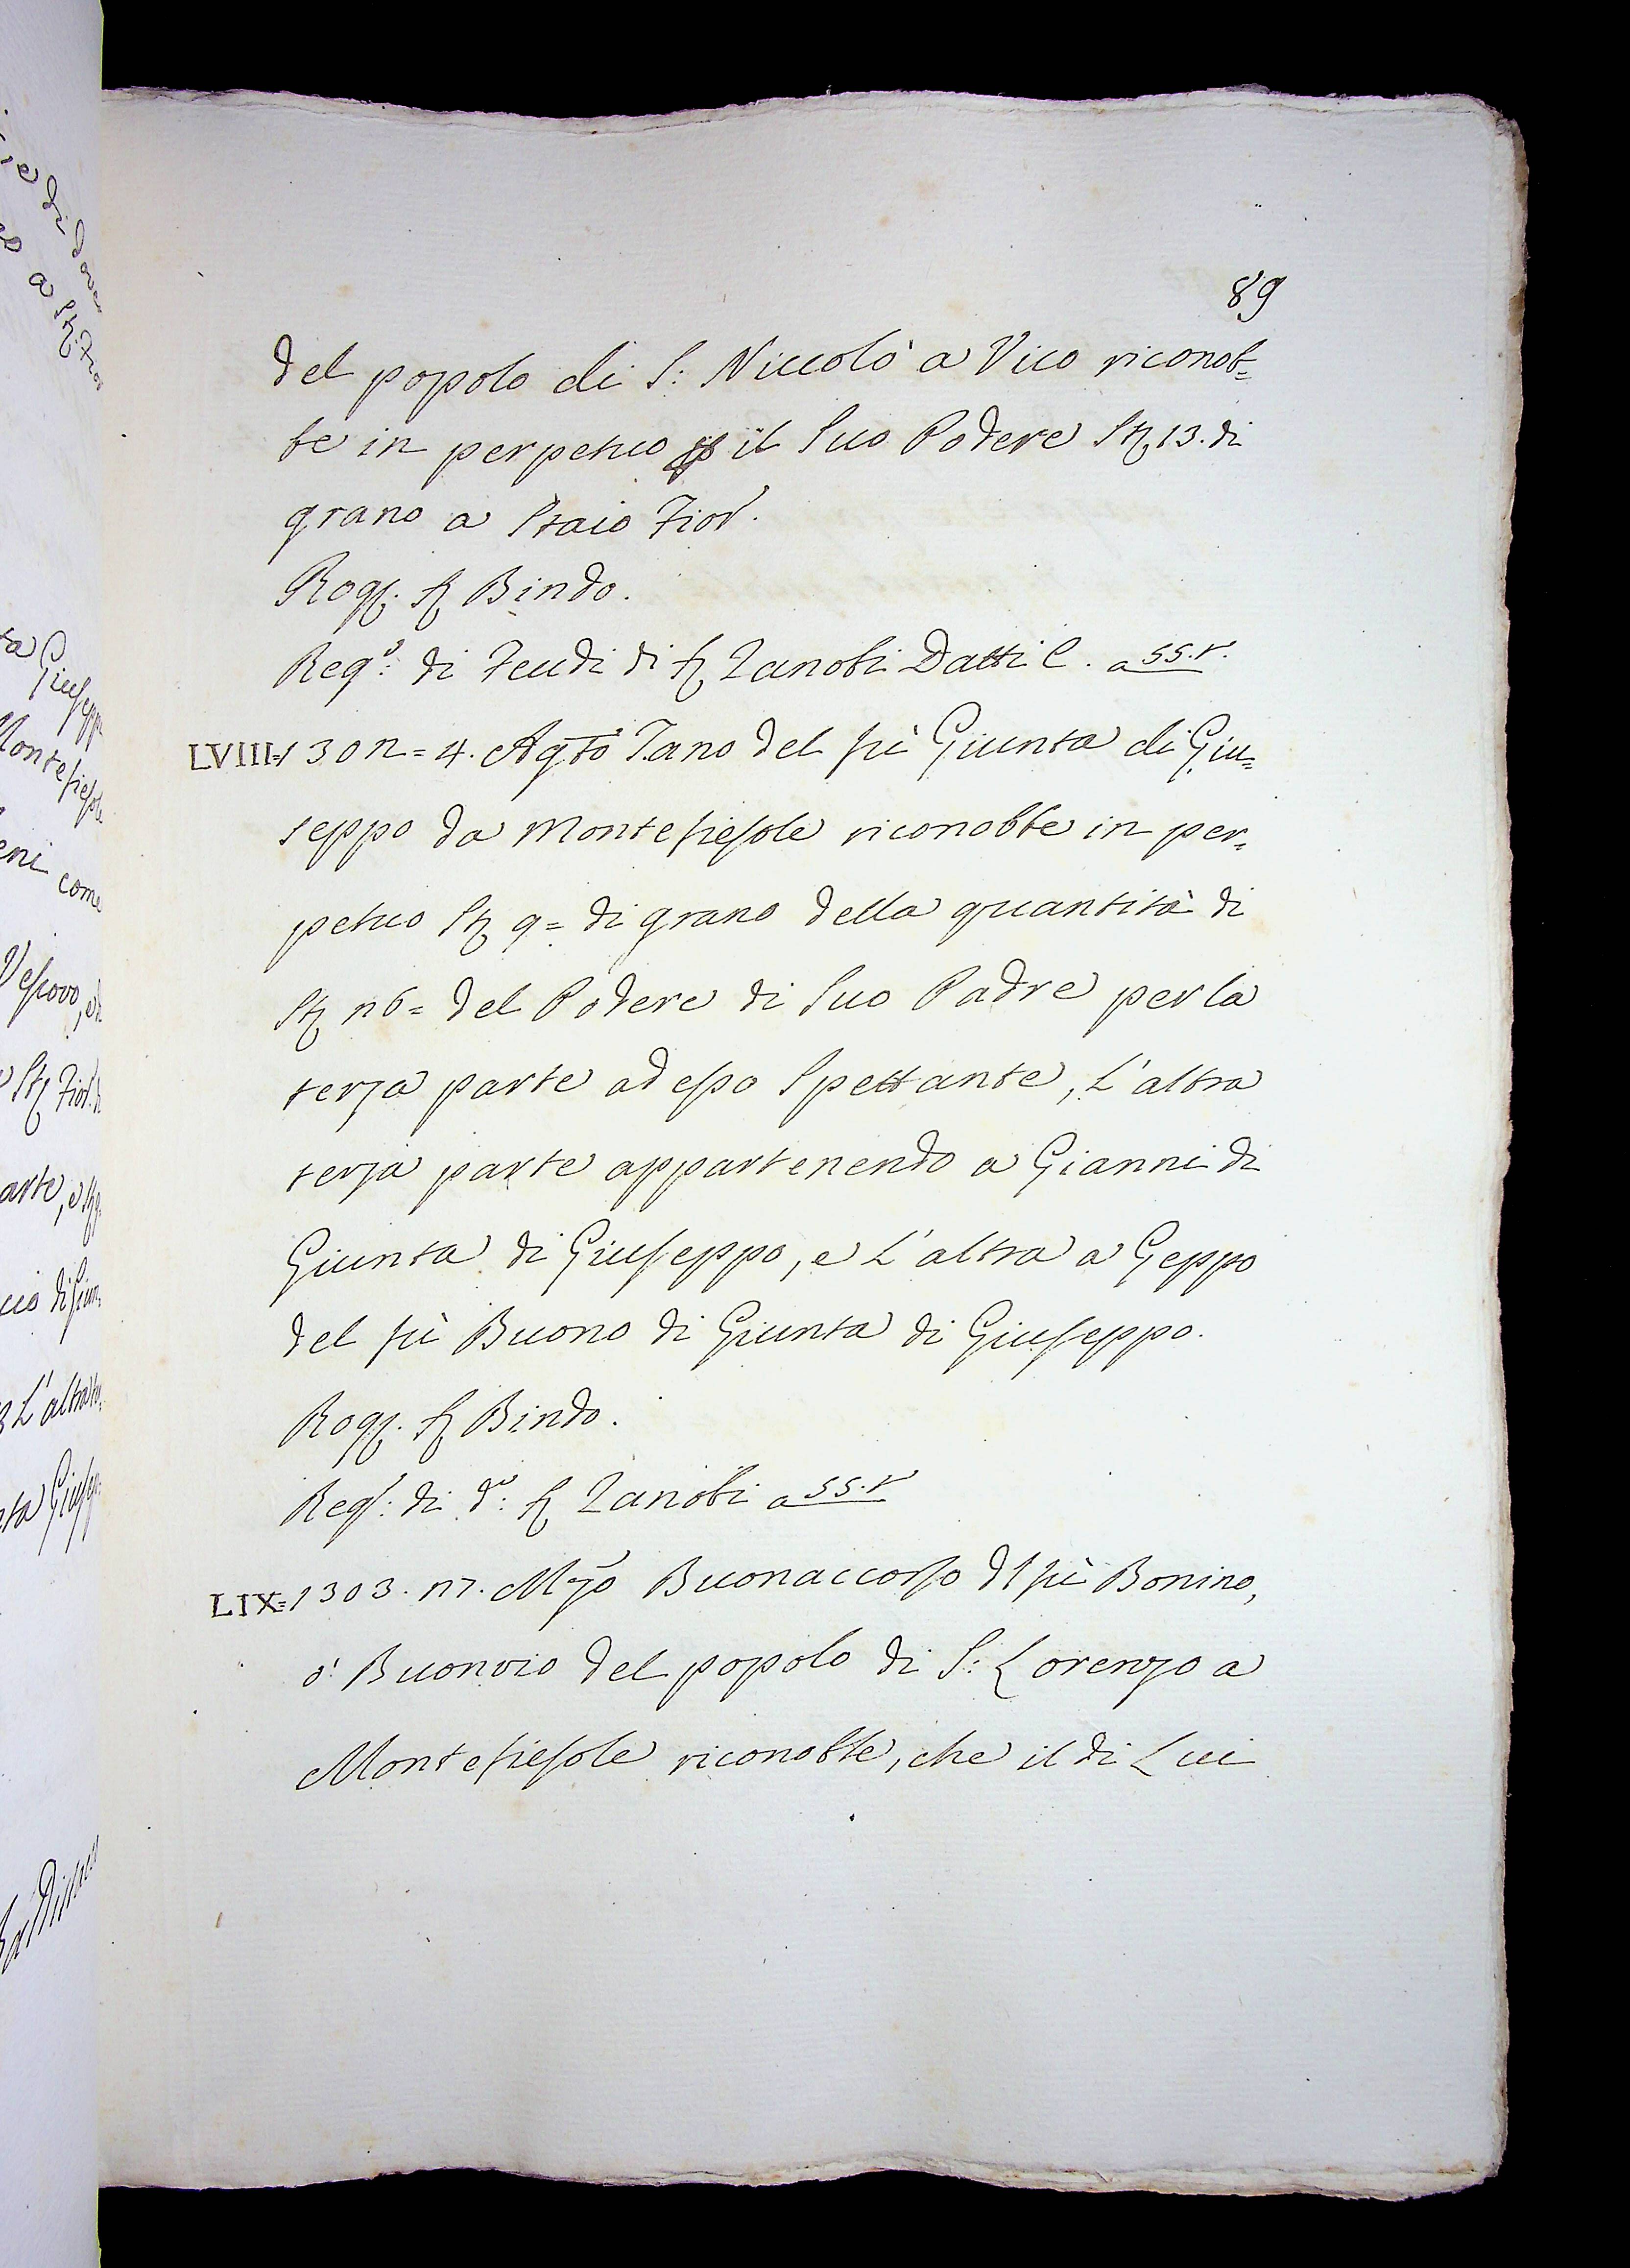 89
del popolo di S: Niccolò a Vico riconob=
be in perpetuo p il Suo Podere Sta 13. di
grano a Staio Fior.
Rogo. Sr Bindo.
Rego: di Feudi di Sr Zanobi Datti C. a 55.t.
LVIII=1302=4. Agto Tano del fù Giunta di Giu=
seppo da Montefiesole riconobbe in per=
petuo Sta 9= di grano della quantità di
Sta 26= del Podere di Suo Padre per la
terza parte ad esso Spettante, L'altra
terza parte appartenendo a Gianni di
Giunta di Giuseppo, e L'altra a Geppo
del fù Buono di Giunta di Giuseppo.
Rogo. Sr Bindo.
Rego: di do: Sr Zanobi a 55.t
LIX=1303. 27. Mzo Buonaccorso dl fù Bonino,
ò Buonvio del popolo di S: Lorenzo a
Montefiesole riconobbe, che il di Lui